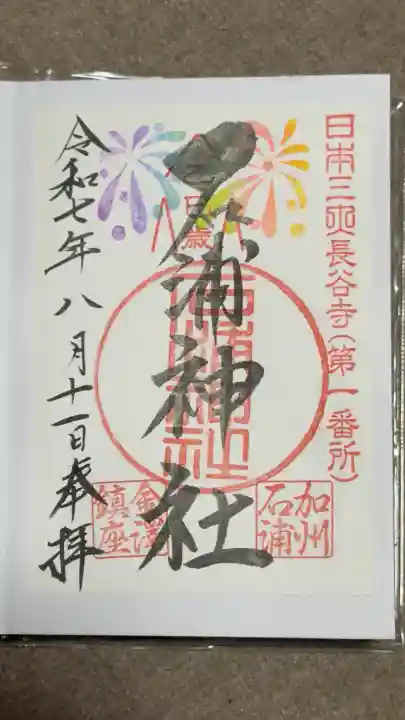 日本三大長谷寺(第一番所)
加州
石浦
石浦神社
金澤
鎮座
令和七年八月十一日奉拝